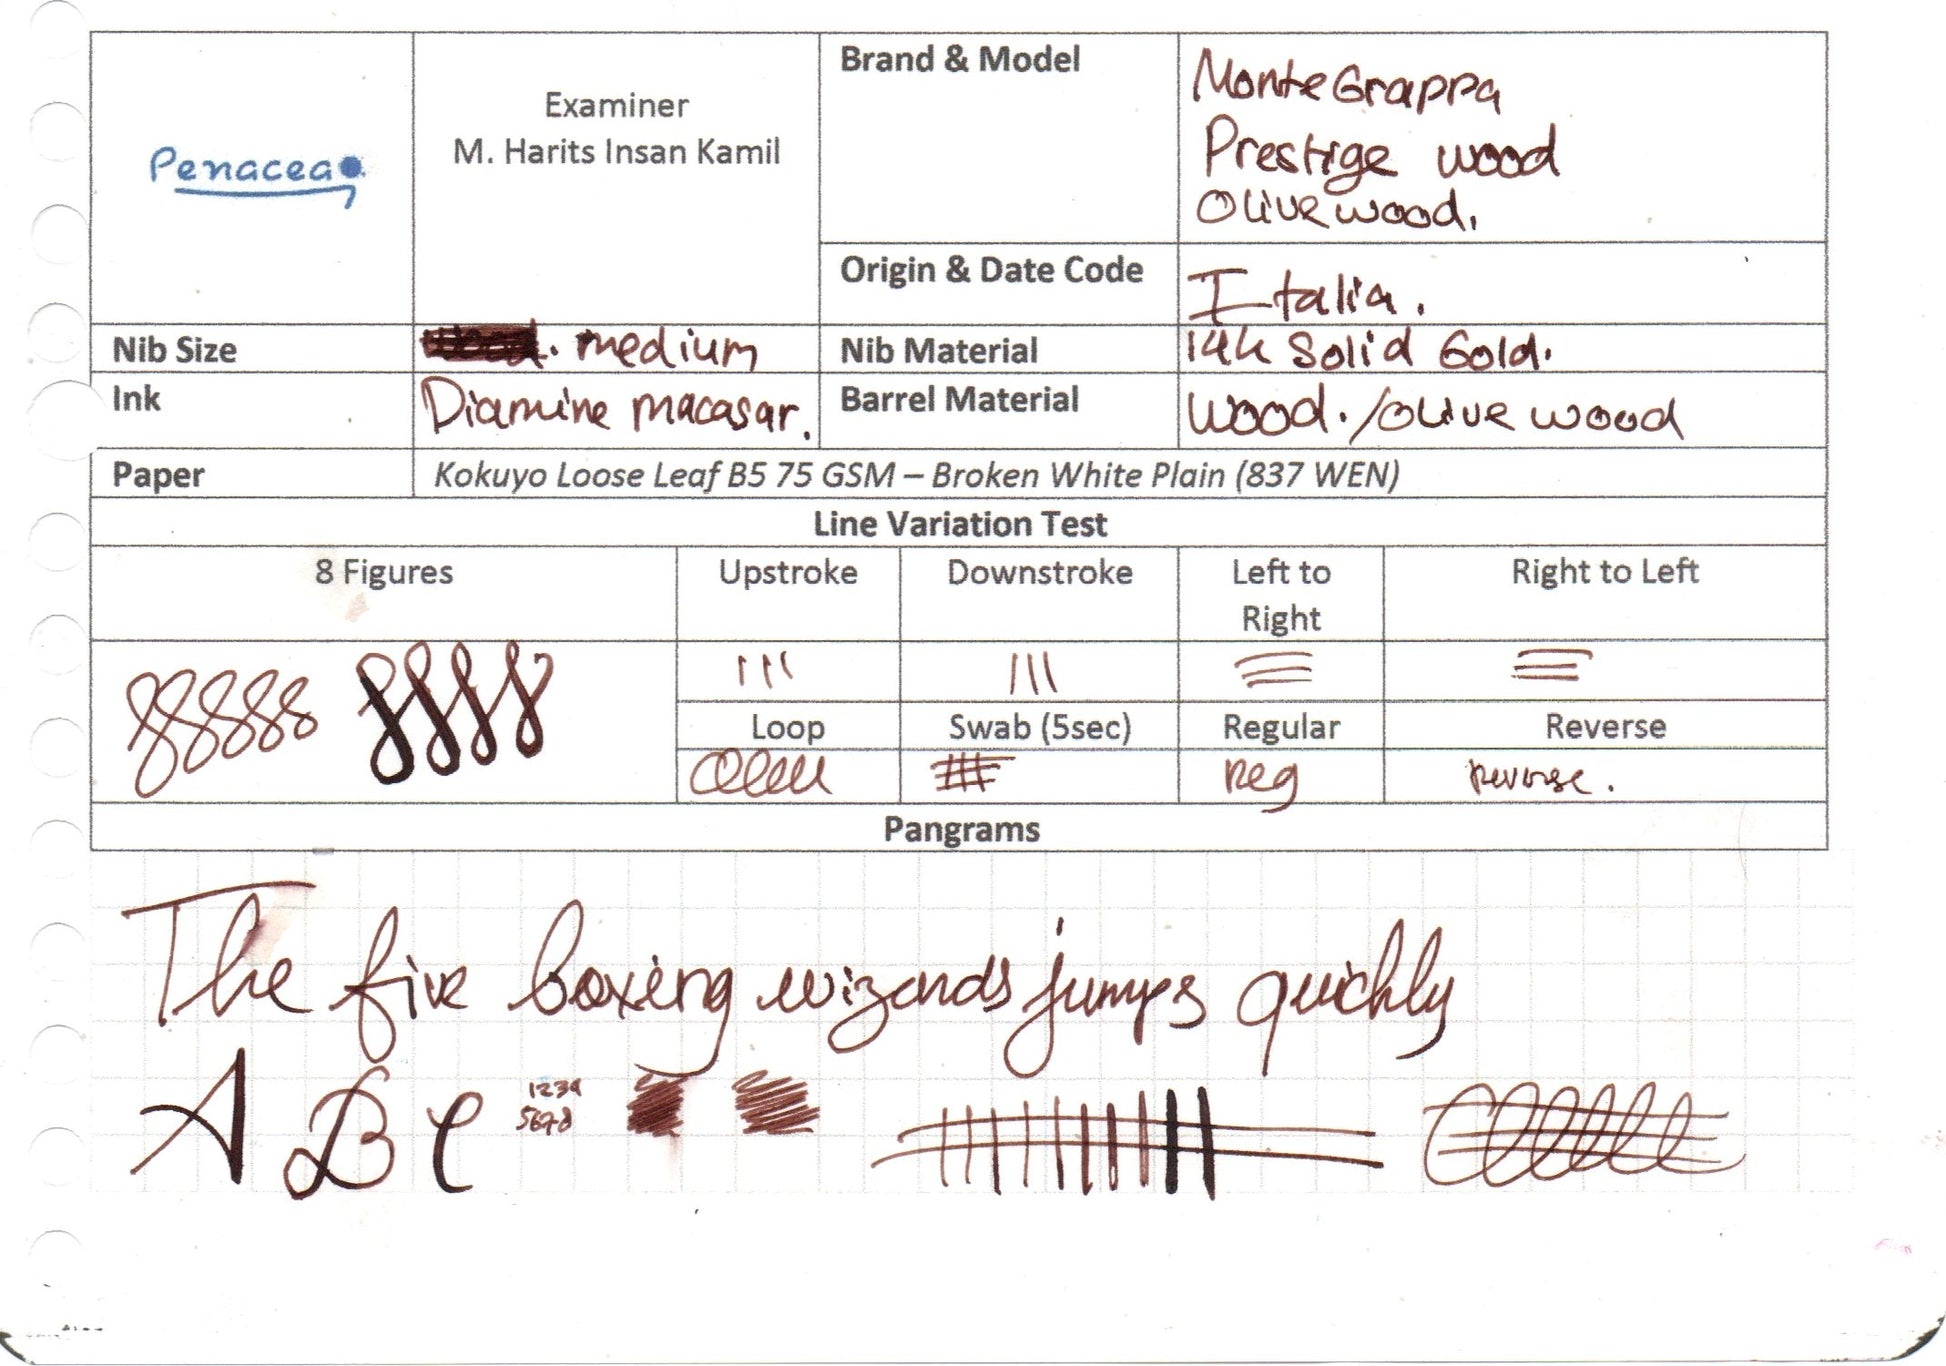 Penacea
Examiner
M. Harits Insan Kamil
Brand & Model
MonteGrappa
Prestige wood
Olivewood.
Origin & Date Code
Italia.
Nib Size
medium
Nib Material
14k Solid Gold.
Ink
Diamine macasar.
Barrel Material
Wood. /Olive wood
Paper
Kokuyo Loose Leaf B5 75 GSM – Broken White Plain (837 WEN)
Line Variation Test
8 Figures
Upstroke
Downstroke
Left to
Right
Right to Left
Loop
Swab (5sec)
Regular
Reverse
Reg
Reverse.
Pangrams
The five boxing wizards jumps quickly
A B C
1234
5678